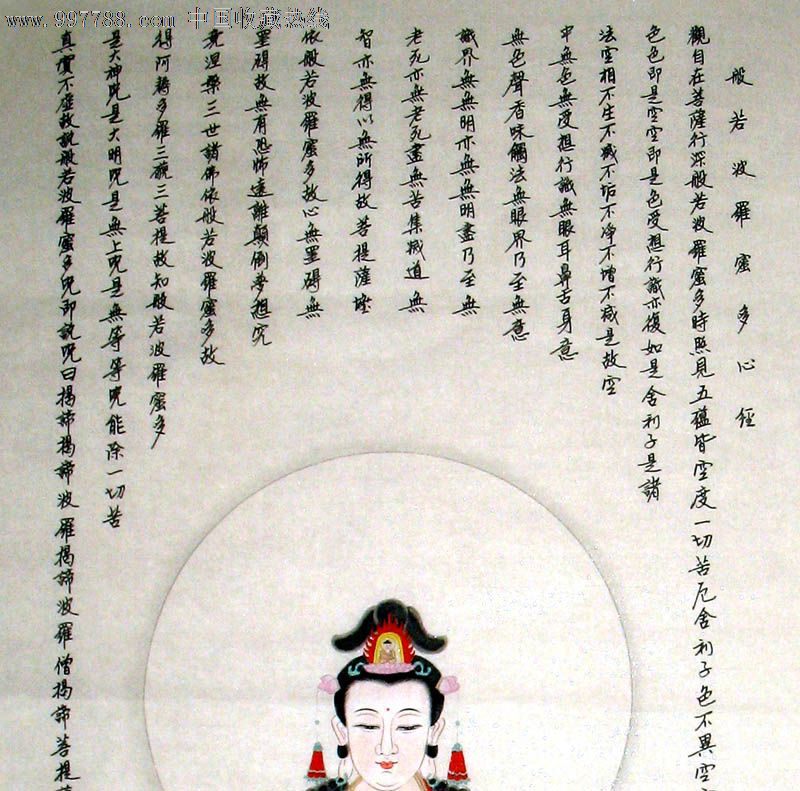 www.997788.com 中国收藏热线
般若波羅蜜多心經
觀自在菩薩行深般若波羅蜜多時照見五蘊皆空度一切苦厄舍利子色不異空
色色即是空空即是色受想行識亦復如是舍利子是諸
法空相不生不滅不垢不净不增不减是故空
中無色無受想行識無眼耳鼻舌身意
無色聲香味觸法無眼界乃至無意
識界無無明亦無無明盡乃至無
老死亦無老死盡無苦集滅道無
智亦無得以無所得故菩提薩埵
依般若波羅蜜多故心無罣碍無
罣碍故無有恐怖遠離顛倒夢想究
竟涅槃三世諸佛依般若波羅蜜多故
得阿耨多羅三藐三菩提故知般若波羅蜜多
是大神咒是大明咒是無上咒是無等等咒能除一切苦
真實不虛故說般若波羅蜜多咒即說咒曰揭諦揭諦波羅揭諦波羅僧揭諦菩提